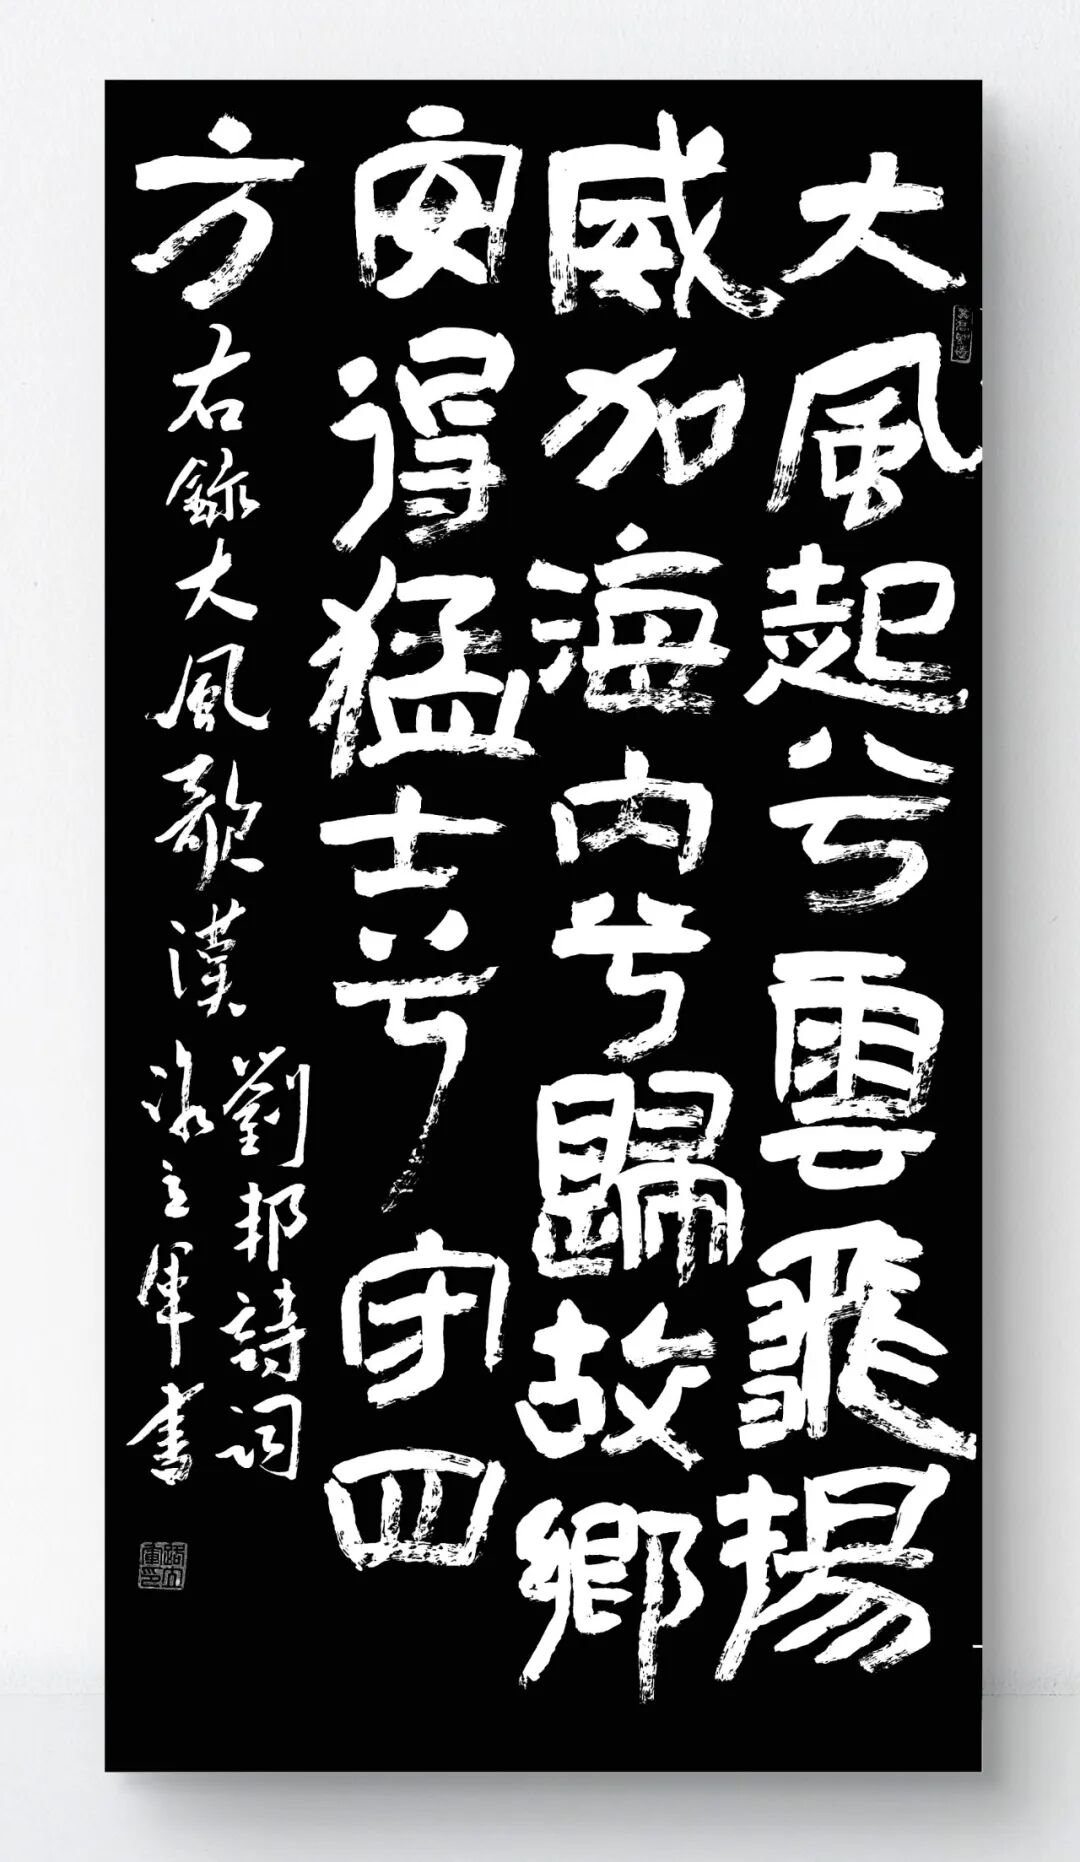 大風起兮雲飛揚
威加海内兮歸故鄉
安得猛士兮守四
方
右録大風歌漢
劉邦詩詞
立軍書